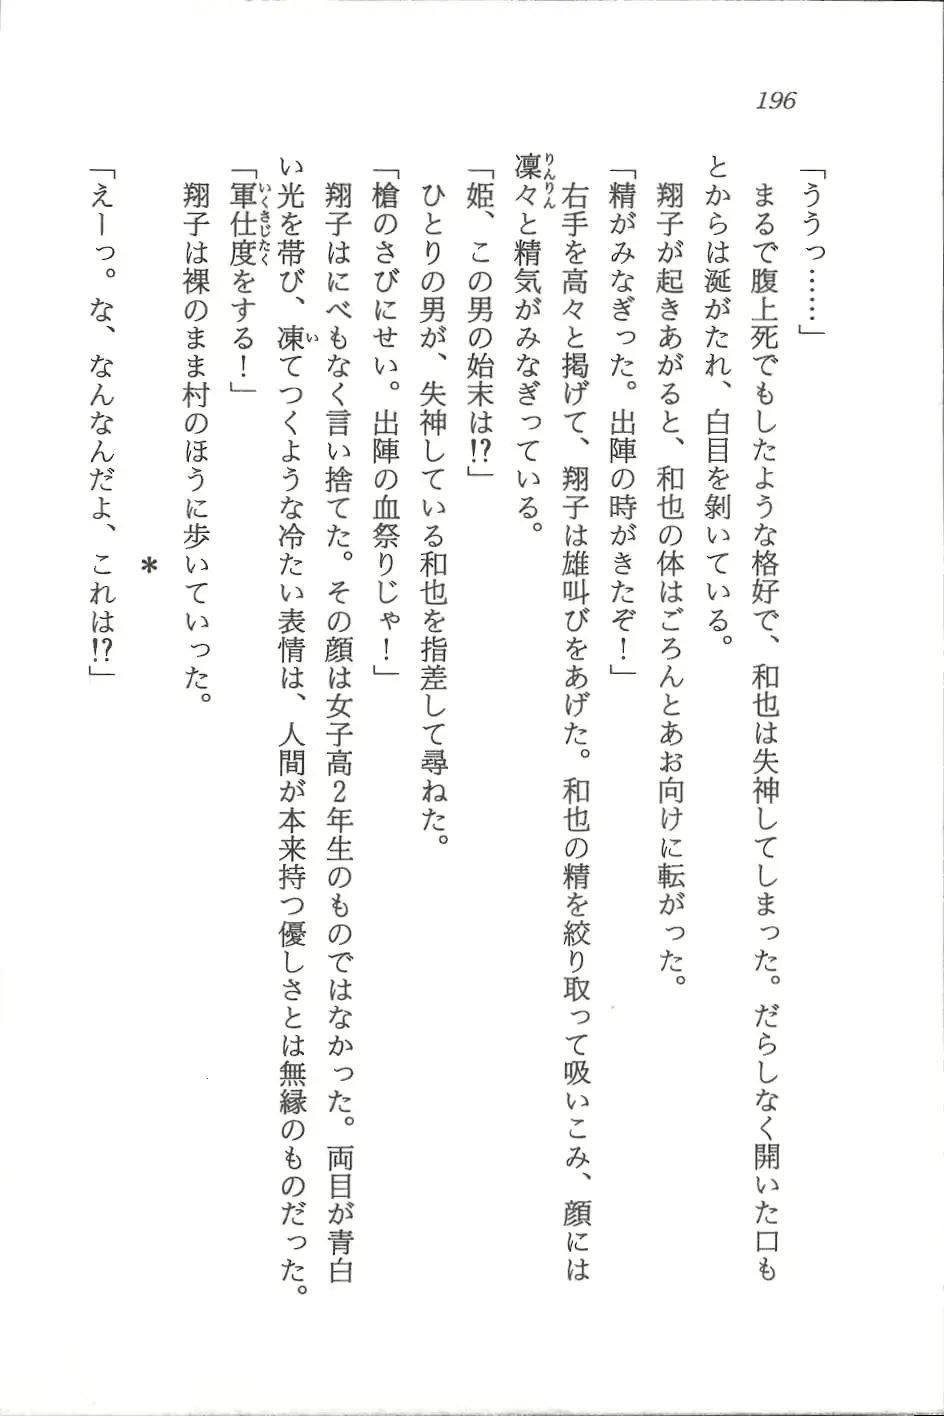 196
「ううっ……」
まるで腹上死でもしたような格好で、和也は失神してしまった。だらしなく開いた口も
とからは涎がたれ、白目を剝いている。
翔子が起きあがると、和也の体はごろんとあお向けに転がった。
「精がみなぎった。出陣の時がきたぞ！」
右手を高々と掲げて、翔子は雄叫びをあげた。和也の精を絞り取って吸いこみ、顔には
凜々と精気がみなぎっている。
りんりん
「姫、この男の始末は!?」
ひとりの男が、失神している和也を指差して尋ねた。
「槍のさびにせい。出陣の血祭りじゃ！」
翔子はにべもなく言い捨てた。その顔は女子高２年生のものではなかった。両目が青白
い光を帯び、凍てつくような冷たい表情は、人間が本来持つ優しさとは無縁のものだった。
い
「軍仕度をする！」
いくさじたく
翔子は裸のまま村のほうに歩いていった。
＊
「えーっ。な、なんなんだよ、これは!?」